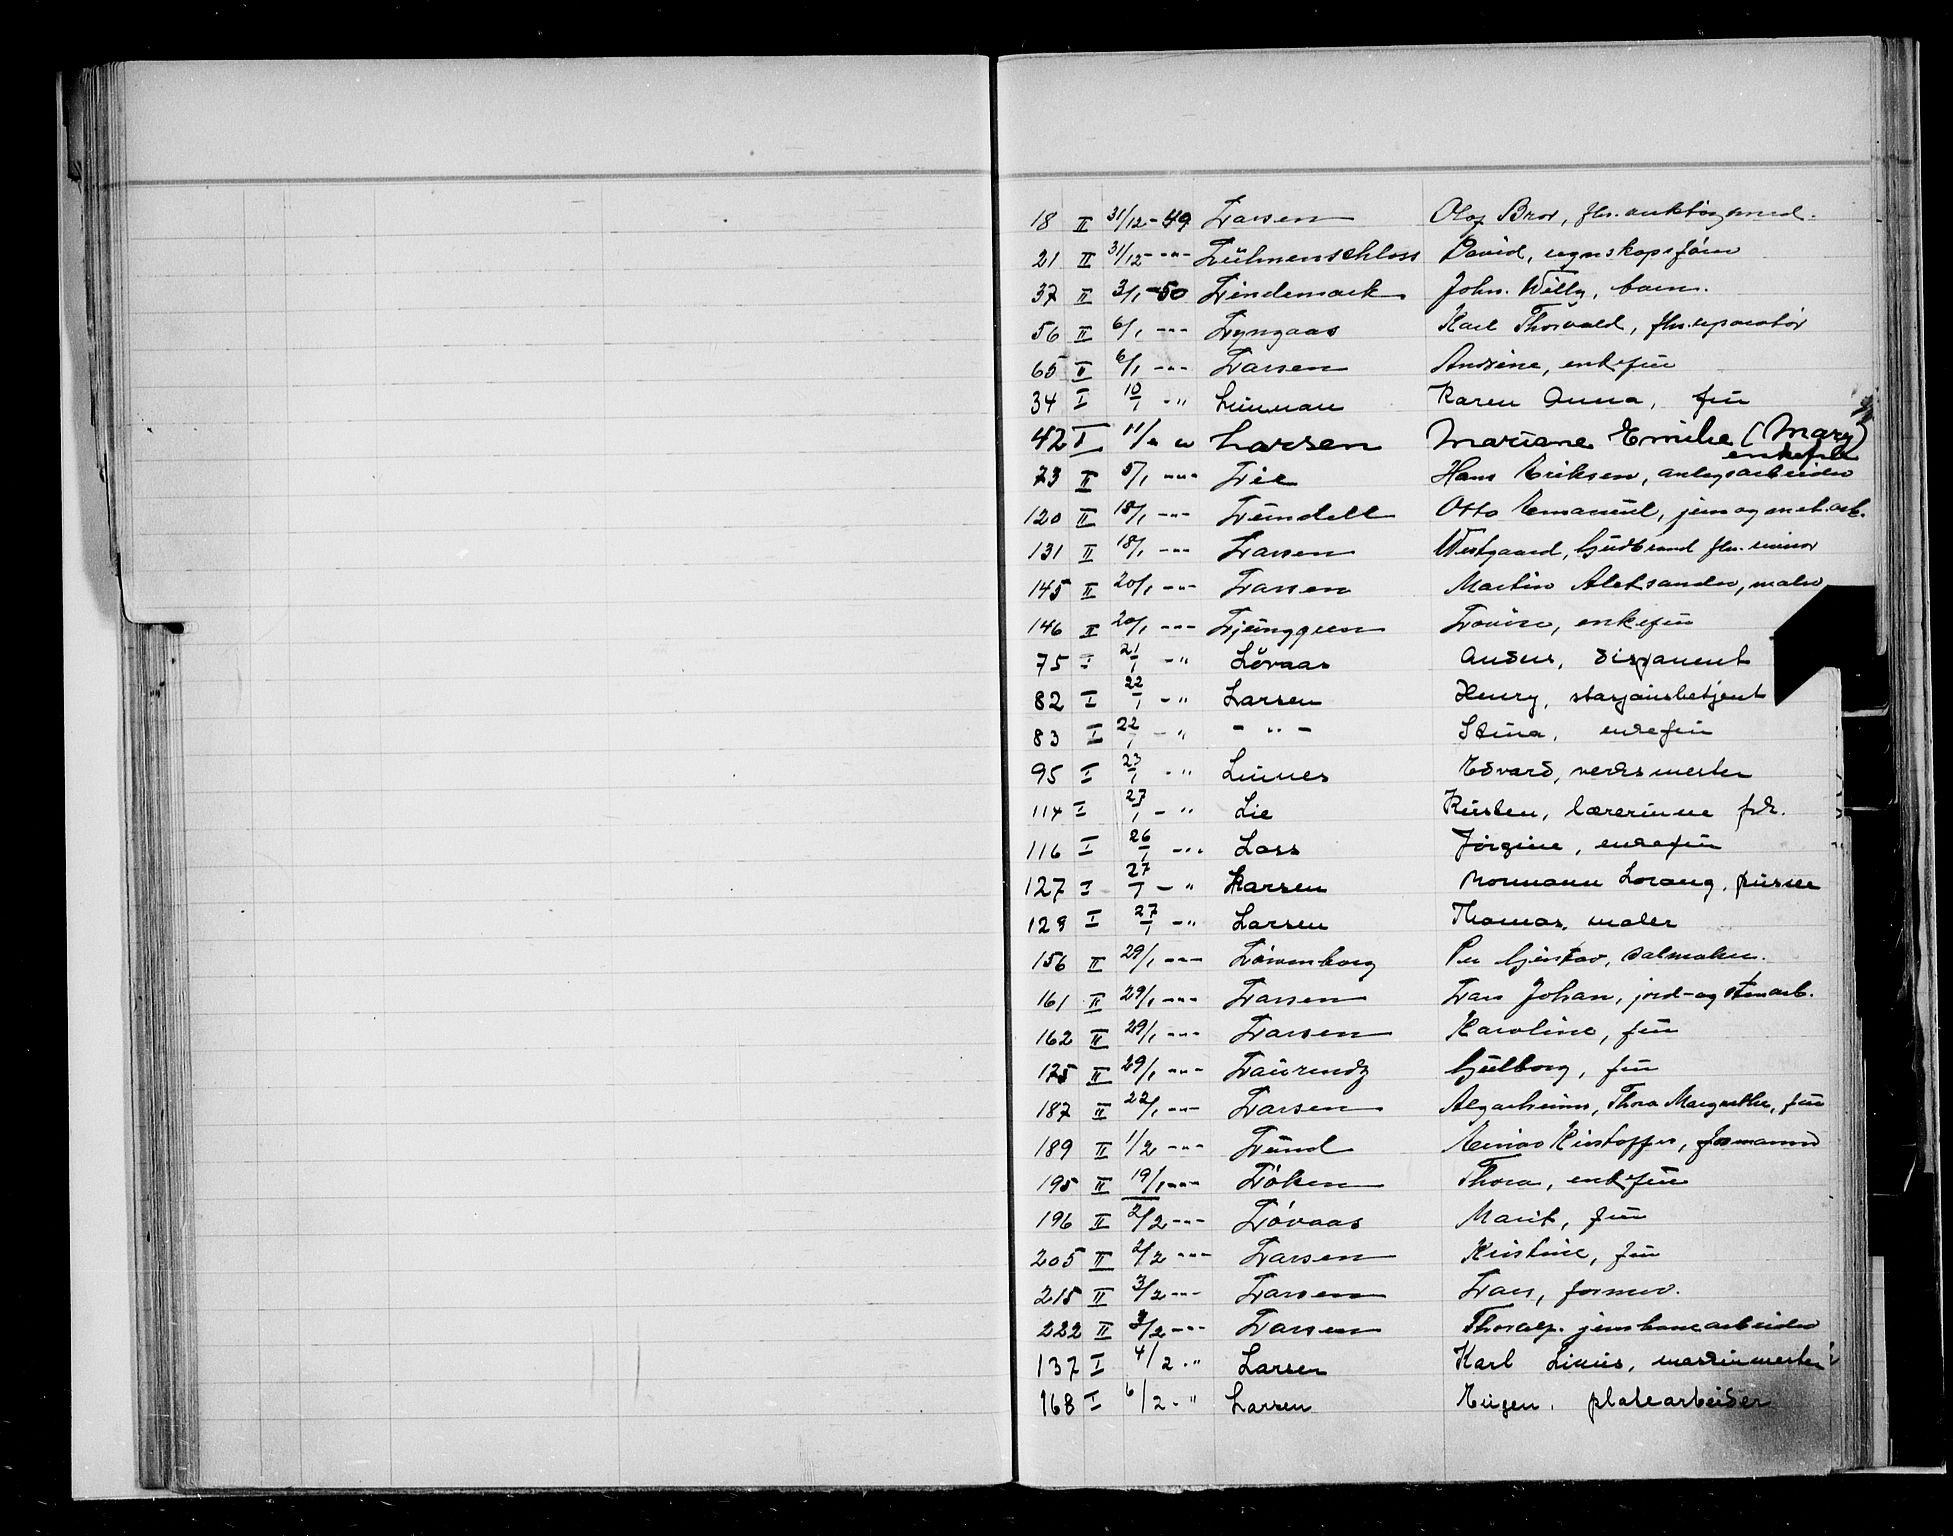 18 II 31/12-49 Larsen Olof Bror, fhv.
21 II 31/12 -"- Lülmenschloss David, regnskapsfører
37 II 3/1-50 Lindemark John Willy, barn.
56 II 6/1 -"- Lyngaas Karl Thorvald, fhv. reparatør
65 II 6/1 -"- Larsen Andrine, enkefru
34 I 10/1 -" Karen Anna, fru
42 I 11/1 " Larsen Mariane Emilie (Mary)
enkefru
73 II 5/1 -"- Lie Hans Eriksen, anlegsarbeider
120 II 18/1 -"- Lundell Otto Emanuel, jern og met. arb.
131 II 18/1 -"- Larsen Westgaard, Gudbrand fhv. revisor
145 II 20/1 -"- Larsen Martin Aleksander, maler
146 II 20/1 -"- Ljunggren Lovise, enkefru
75 I 21/1 -" Lövaas Anders, disponent
82 I 22/1 -" Larsen Henry, stasjonsbetjent
83 I 22/1 -" - " - Stina, enkefru
95 I 23/1 -" Linnes Edvard, verksmester
114 I 27/1 -" Lie Kirsten, lærerinne frk.
116 I 26/1 -" Lass Jörgine, enkefru
127 I 27/1 -" Larsen Normann Lorang, pusser
129 I 27/1 -" Larsen Thomas, maler
156 II 29/1 -"- Løvenborg Per Gustav, salmaker.
161 II 29/1 -"- Larsen Lars Johan, jord- og stenarb.
162 II 29/1 -"- Larsen Karoline, fru
175 II 29/1 -"- Laurendz Gulborg, fru
187 II 22/1 -"- Larsen Algarheim, Thora Margrethe, fru
189 II 1/2 -"- Lund Reinar Kristoffer, formann
195 II 19/1 -"- Løken Thora, enkefru
196 II 2/2 -"- Løvaas Marit, fru
205 II 2/2 -"- Larsen Kristine, fru
215 II 3/2 -"- Larsen Lars, former.
222 II 3/2 -"- Larsen Thoralf. jernbanearbeider
137 I 4/2 -" Larsen Karl Linus, maskinmester
168 I 6/2 -" Larsen Eugen, platearbeider